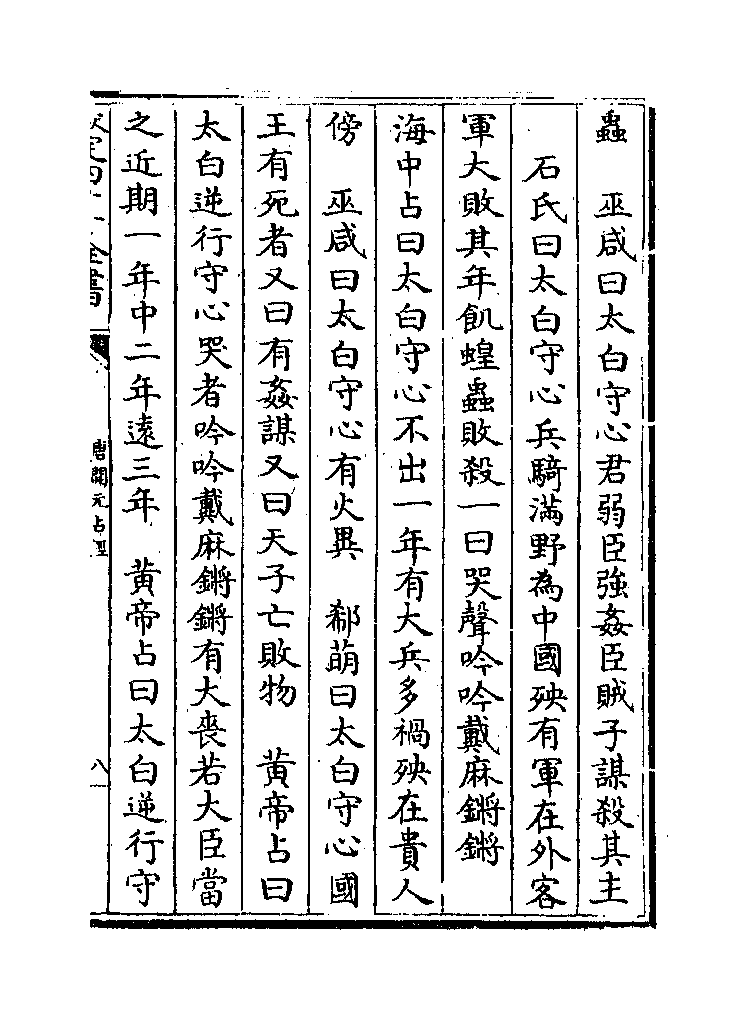 蟲　巫咸曰太白守心君弱臣強姦臣賊子謀殺其主
石氏曰太白守心兵騎滿野為中國殃有軍在外客
軍大敗其年飢蝗蟲敗殺一曰哭聲吟吟戴麻鏘鏘
海中占曰太白守心不出一年有大兵多禍殃在貴人
傍　巫咸曰太白守心有火異　郗萌曰太白守心國
王有死者又曰有姦謀又曰天子亡敗物　黄帝占曰
太白逆行守心哭者吟吟戴麻鏘鏘有大喪若大臣當
之近期一年中二年遠三年　黄帝占曰太白逆行守
欽定四庫全書　唐開元占經　八